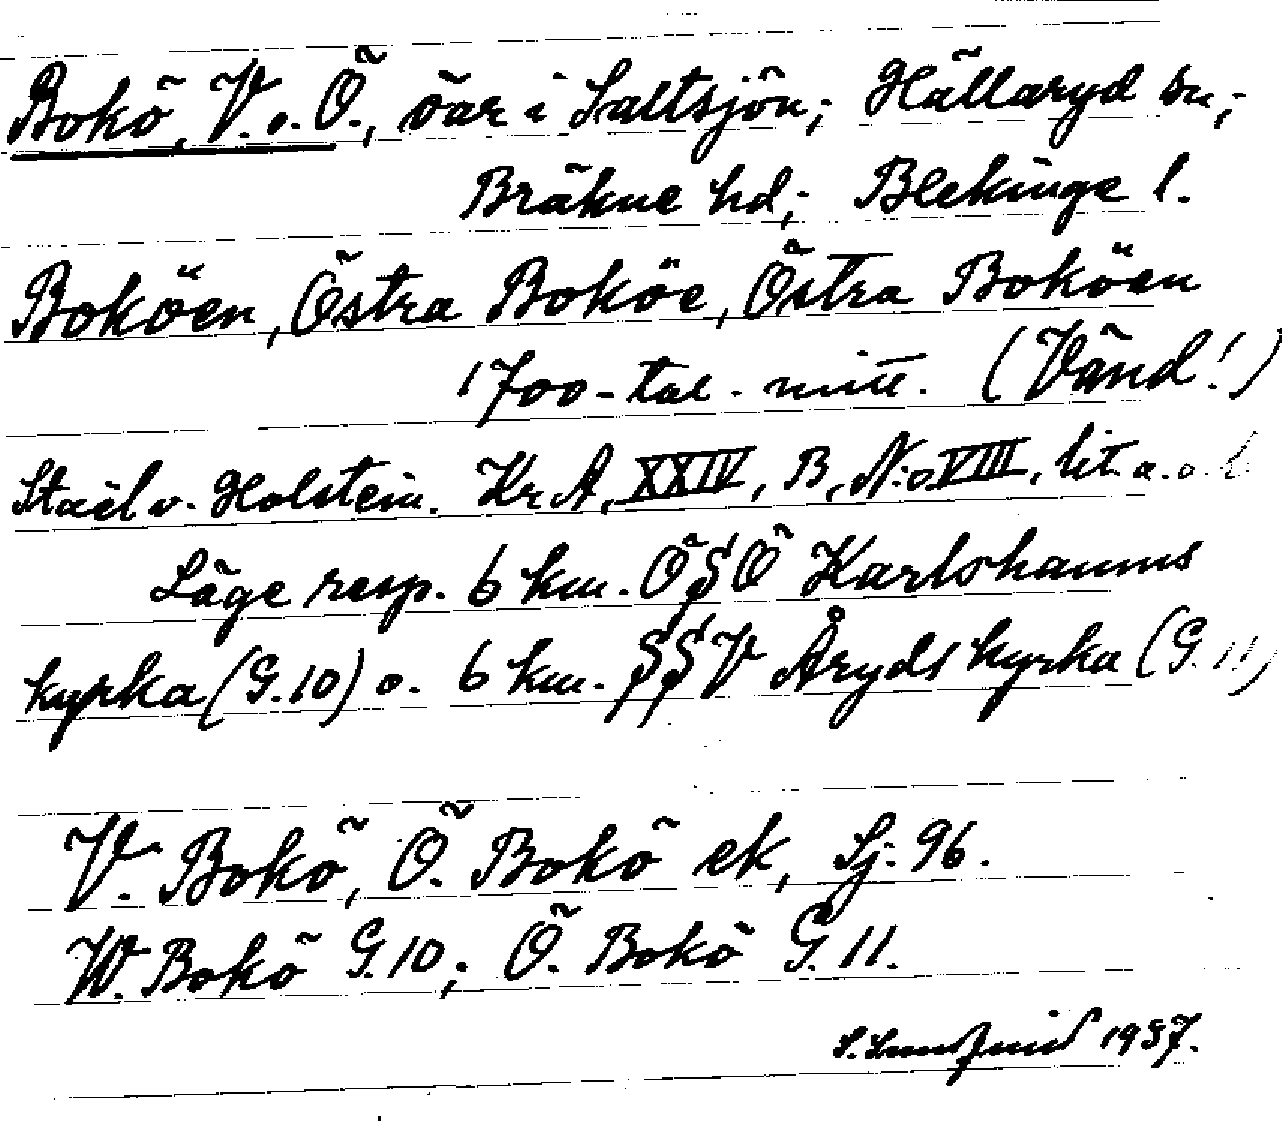 Bokö, V. o. Ö., öar i Saltsjön; Hällaryd sn;
Bräkne hd; Blekinge l.
Boköen, Östra Boköe, Östra Boköen
1700-tal. mitt. (Vänd!)
Stael v. Holstein. Kr A, XXIV, B, N:o VIII, lit a. o. b
Läge resp. 6 km. ÖSÖ Karlshamns
kyrka (G. 10) o. 6 km. SSV Åryds kyrka (G. 11)
V. Bokö, Ö. Bokö ek, Sj. 96.
W. Bokö G. 10; Ö. Bokö G. 11.
1937.